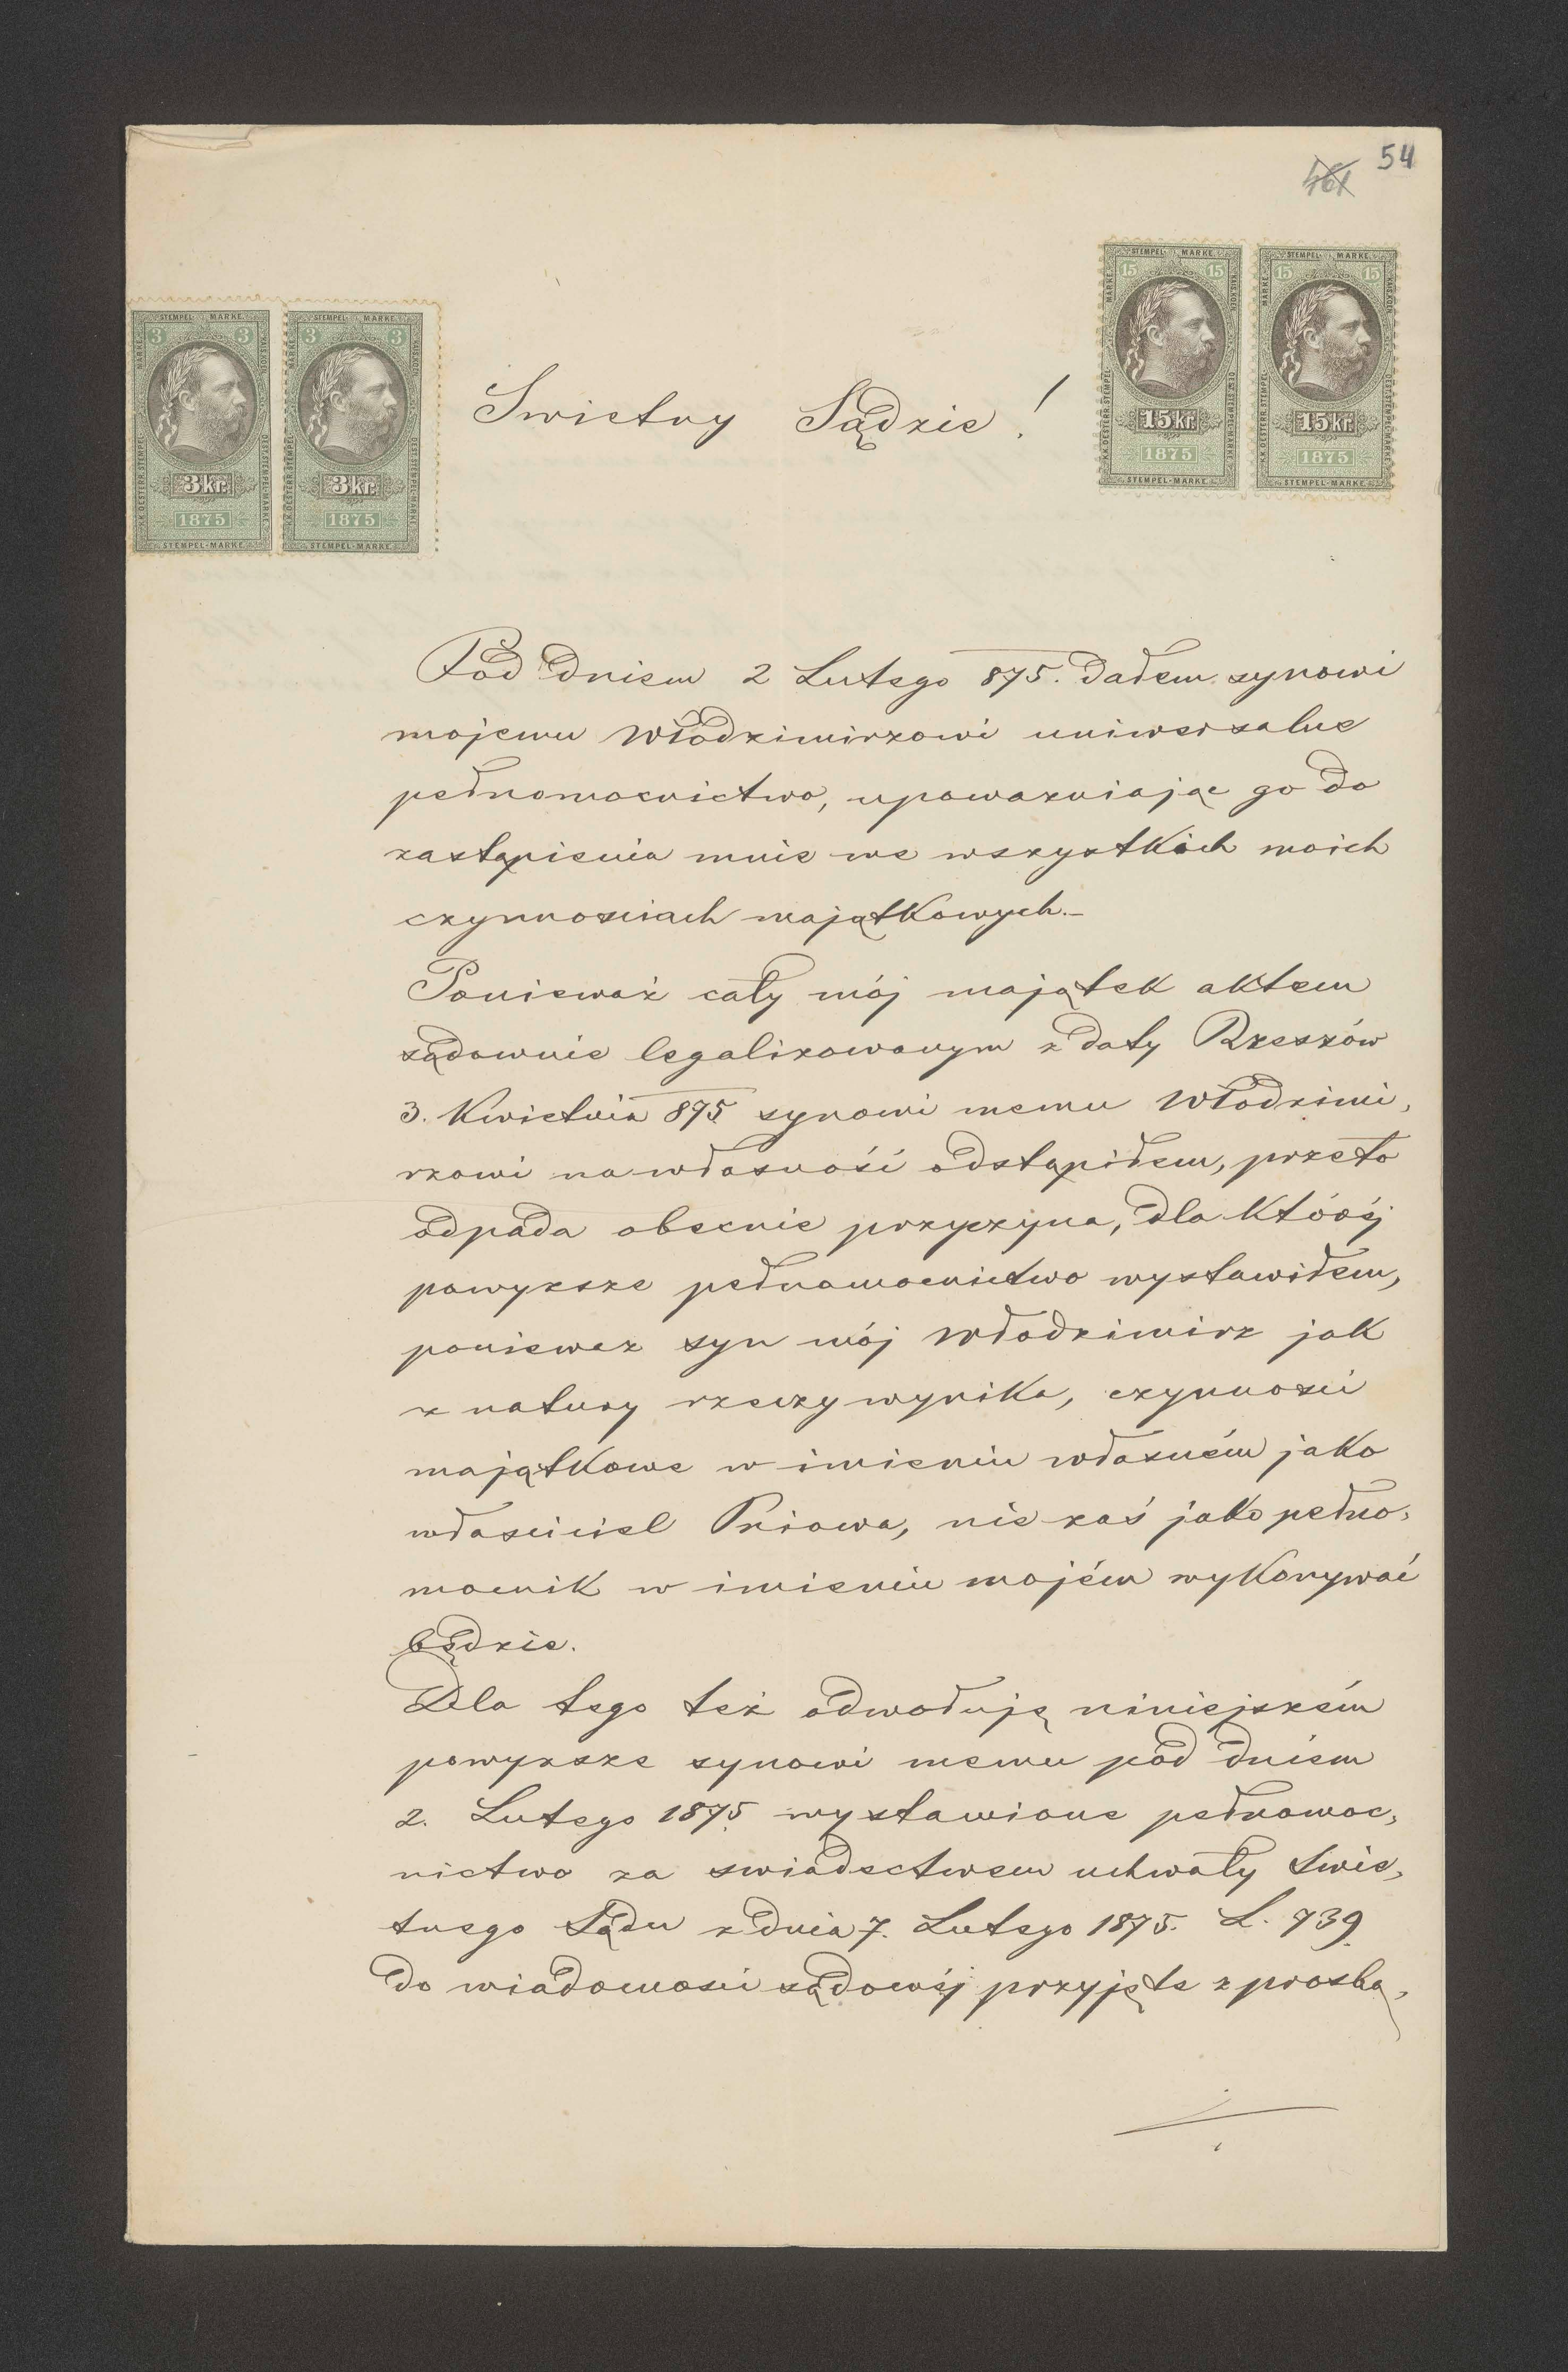 54
461
STEMPEL MARKE
15 15
15 kr.
1875
STEMPEL-MARKE
STEMPEL MARKE
15 15
15 kr.
1875
STEMPEL-MARKE
STEMPEL MARKE
3 3
3 kr.
1875
STEMPEL-MARKE
STEMPEL MARKE
3 3
3 kr.
1875
STEMPEL-MARKE
Swietny Sądzie!
Pod dniem 2 Lutego 875. dałem synowi
mojemu Włodzimirzowi uniwersalne
pełnomocnictwo, upoważniając go do
zastąpienia mnie we wszystkich moich
czynnosciach majątkowych.–
Ponieważ cały mój majątek aktem
sądownie legalizowanym z daty Rzeszów
3. Kwietnia 875 synowi memu Włodzimi,
rzowi na własność odstąpiłem, przeto
odpada obecnie przyczyna, dla któréj
powyzsze pełnomocnictwo wystawiłem,
poniewaz syn mój Włodzimirz jak
z natury rzeczy wynika, czynnosci
majątkowe w imieniu własném jako
własciciel Pniowa, nie zaś jako pełno,
mocnik w imieniu mojém wykonywać
będzie.
Dla tego też odwołuję niniejszém
powyzsze synowi memu pod dniem
2. Lutego 1875 wystawione pełnomoc,
nictwo za swiadectwem uchwały Swie,
tnego Sądu z dnia 7. Lutego 1875. L. 739.
do wiadomosci sądowéj przyjęte z prosbą,